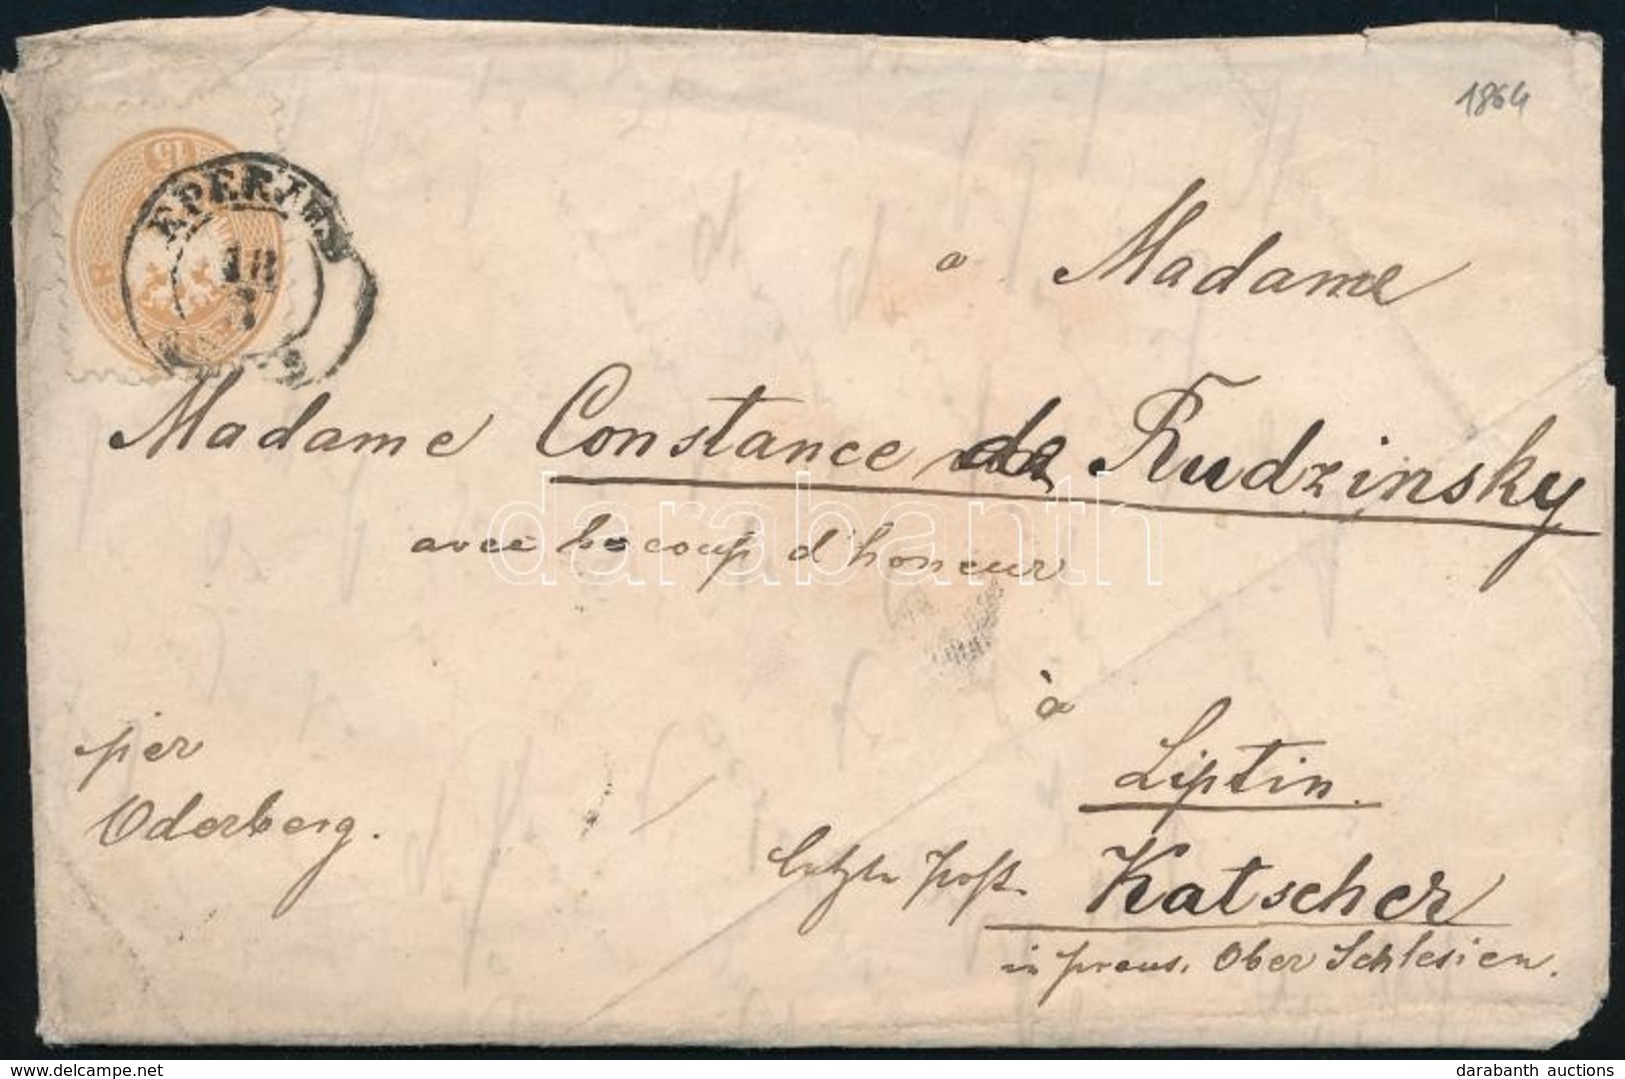 1864
15
EPERIES
18
a Madame
Madame Constance de Rudzinsky
avec becoup d'honeur
darabanth
à
per
Liptin
Oderberg.
letzte Post. Katscher
in preus. Ober Schlesien.
darabanth auctions